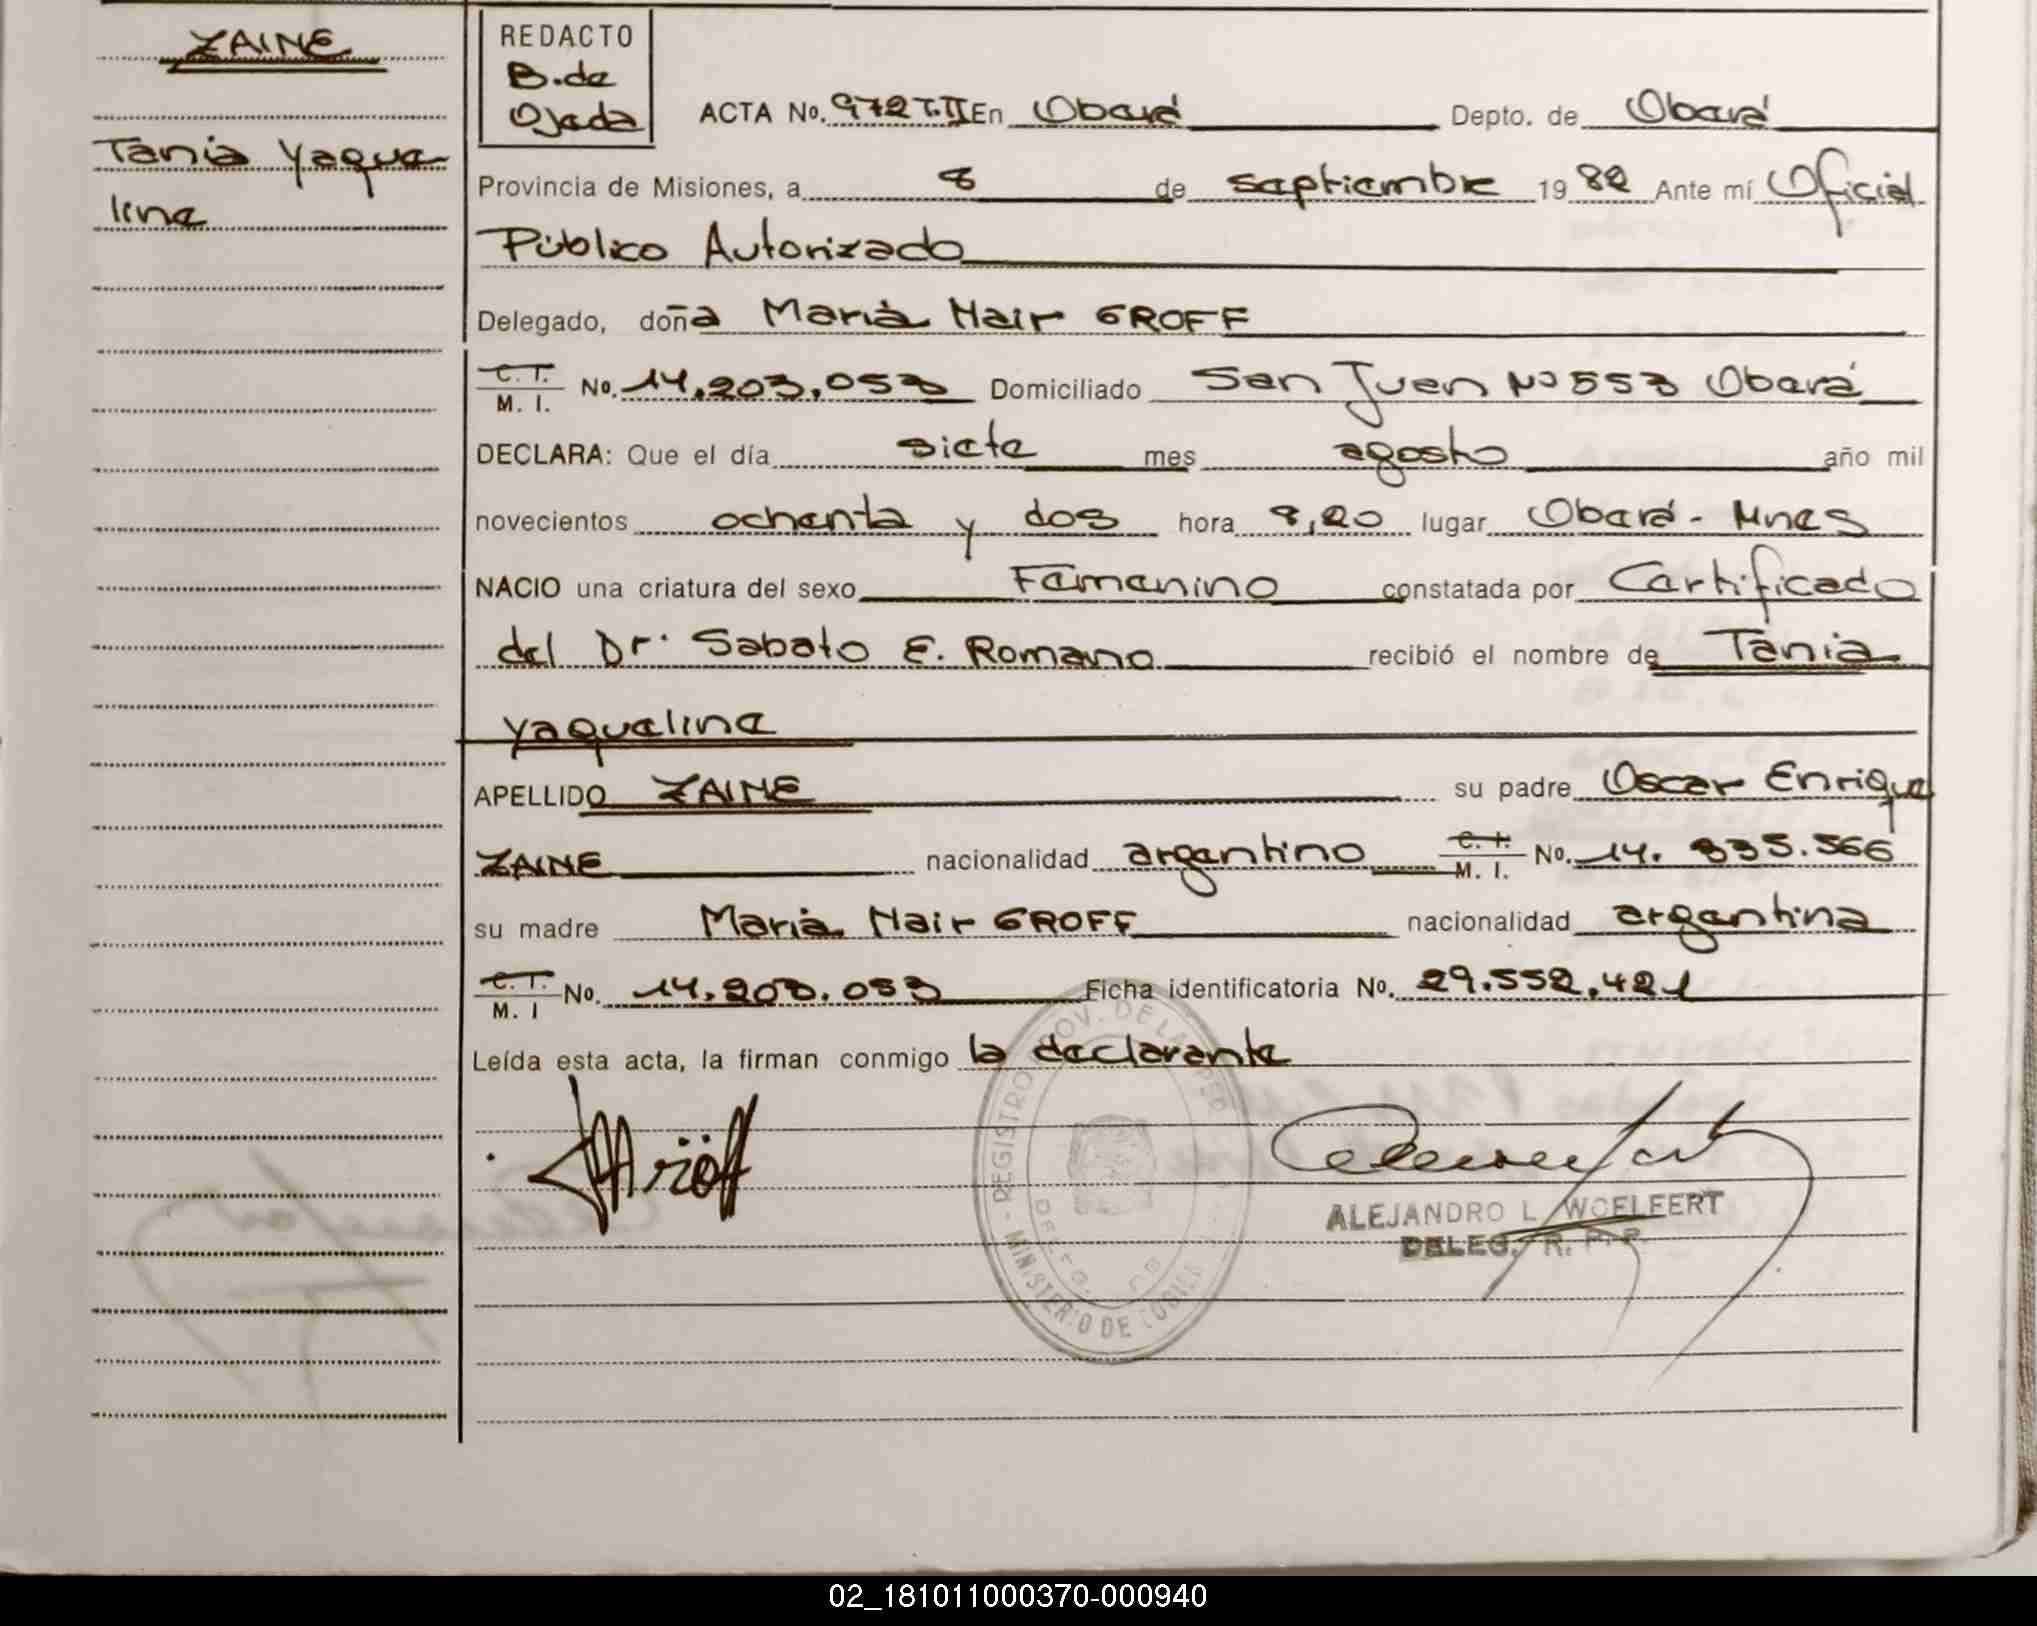 ZAINE
Tania Yaque
line
REDACTO
B.de
Ojeda
ACTA No. 972 T.II En Oberá Depto. de Oberá
Provincia de Misiones, a 8 de septiembre 19 82 Ante mí Oficial
Público Autorizado
Delegado, doña María Nair GROFF
C. I. M. I. No. 14.203.053 Domiciliado San Juan Nº 553 Oberá
DECLARA: Que el día siete mes agosto año mil
novecientos ochenta y dos hora 8,20 lugar Oberá - Mnes
NACIO una criatura del sexo Femenino constatada por Certificado
del Dr. Sabato E. Romano recibió el nombre de Tania
Yaqueline
APELLIDO ZAINE su padre Oscar Enrique
ZAINE nacionalidad argentino C. I. M. I. No. 14. 335.566
su madre María Nair GROFF nacionalidad argentina
C. I. M. I No. 14.203.053 Ficha identificatoria No. 29.552.421
Leída esta acta, la firman conmigo la declarante
REGISTRO PROV. DE LAS
MINISTERIO DE GOBIERNO
ALEJANDRO L. WOELFERT
DELEG. R. P. P.
02_181011000370-000940